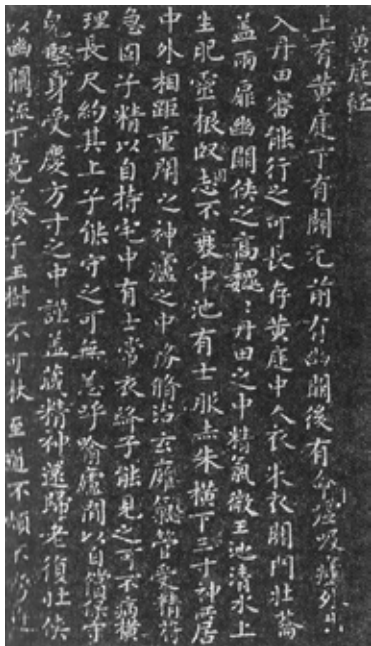 黄庭經
上有黄庭下有關元前有幽闕後有命門噓吸廬外出
入丹田審能行之可長存黄庭中人衣朱衣關門壯蘥
蓋兩扉幽闕俠之高魏魏丹田之中精氣微玉池清水上
生肥靈根堅志不衰中池有士服赤朱橫下三寸神所居
中外相距重閇之神廬之中務脩治玄㢕氣管受精符
急固子精以自持宅中有士常衣絳子能見之可不病橫
理長尺約其上子能守之可無恙呼噏廬閒以自償保守
皃堅身受慶方寸之中謹蓋藏精神還歸老復壯俠
以幽闕流下竟養子玉樹不可杖至道不煩不旁迕